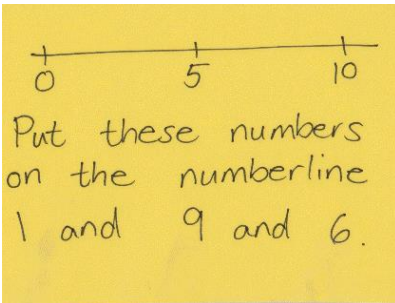 0 5 10
Put these numbers
on the numberline
1 and 9 and 6.